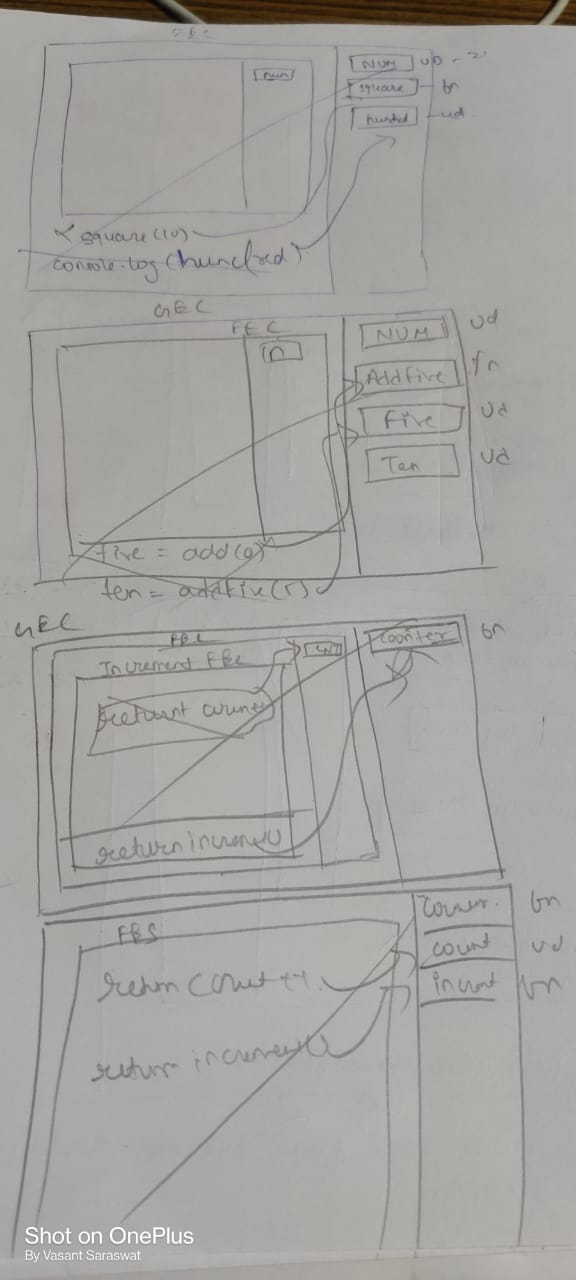 GEC
num
NUM
square
fn
square(10)
console.log(hundred)
GEC
FEC
n
NUM ud
Addfive fn
Five ud
Ten ud
five = add(0)
ten = addfive(5)
GEC
Increment FEC
counter fn
return count
return increment()
FES
fn
count ud
return count ++
return increment()
Shot on OnePlus
By Vasant Saraswat